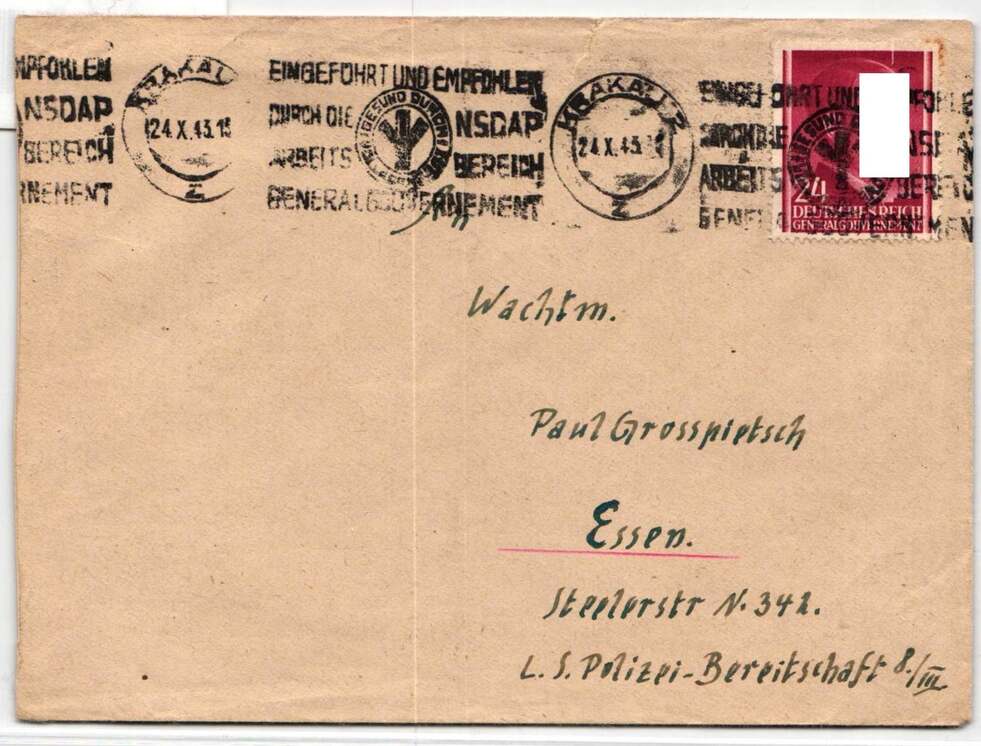 MPFOHLEN
NSDAP
BEREICH
RNEMENT
KRAKAU
24.X.43.15
2
EINGEFÜHRT UND EMPFOHLEN
DURCH DIE NSDAP
ARBEITS BEREICH
GENERALGOUVERNEMENT
KRAKAU 2
24.X.43.
2
EINGEFÜHRT UND
ARBEITS BEREICH
24
DEUTSCHES REICH
GENERALGOUVERNEMENT
Wachtm.
Paul Grosspietsch
Essen.
Steelerstr N. 342.
L. S. Polizei-Bereitschaft 8./III